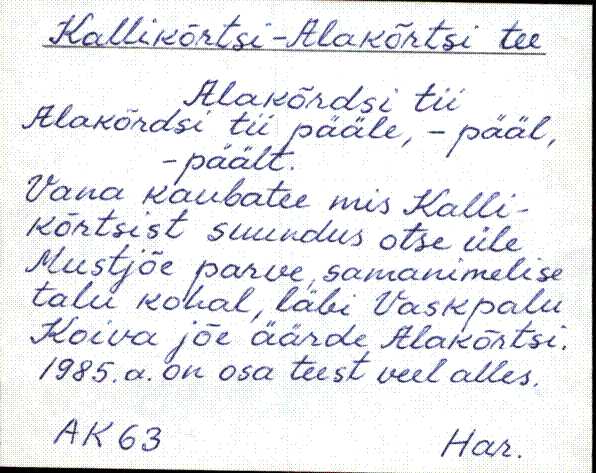 Kallikõrtsi-Alakõrtsi tee
Alakõrdsi tii
Alakõrdsi tii pääle, -pääl,
-päält.
Vana kaubatee mis Kalli-
kõrtsist suundus otse üle
Mustjõe parve, samanimelise
talu kohal, läbi Vaskpalu
Koiva jõe äärde Alakõrtsi.
1985.a. on osa teest veel alles.
AK 63
Har.